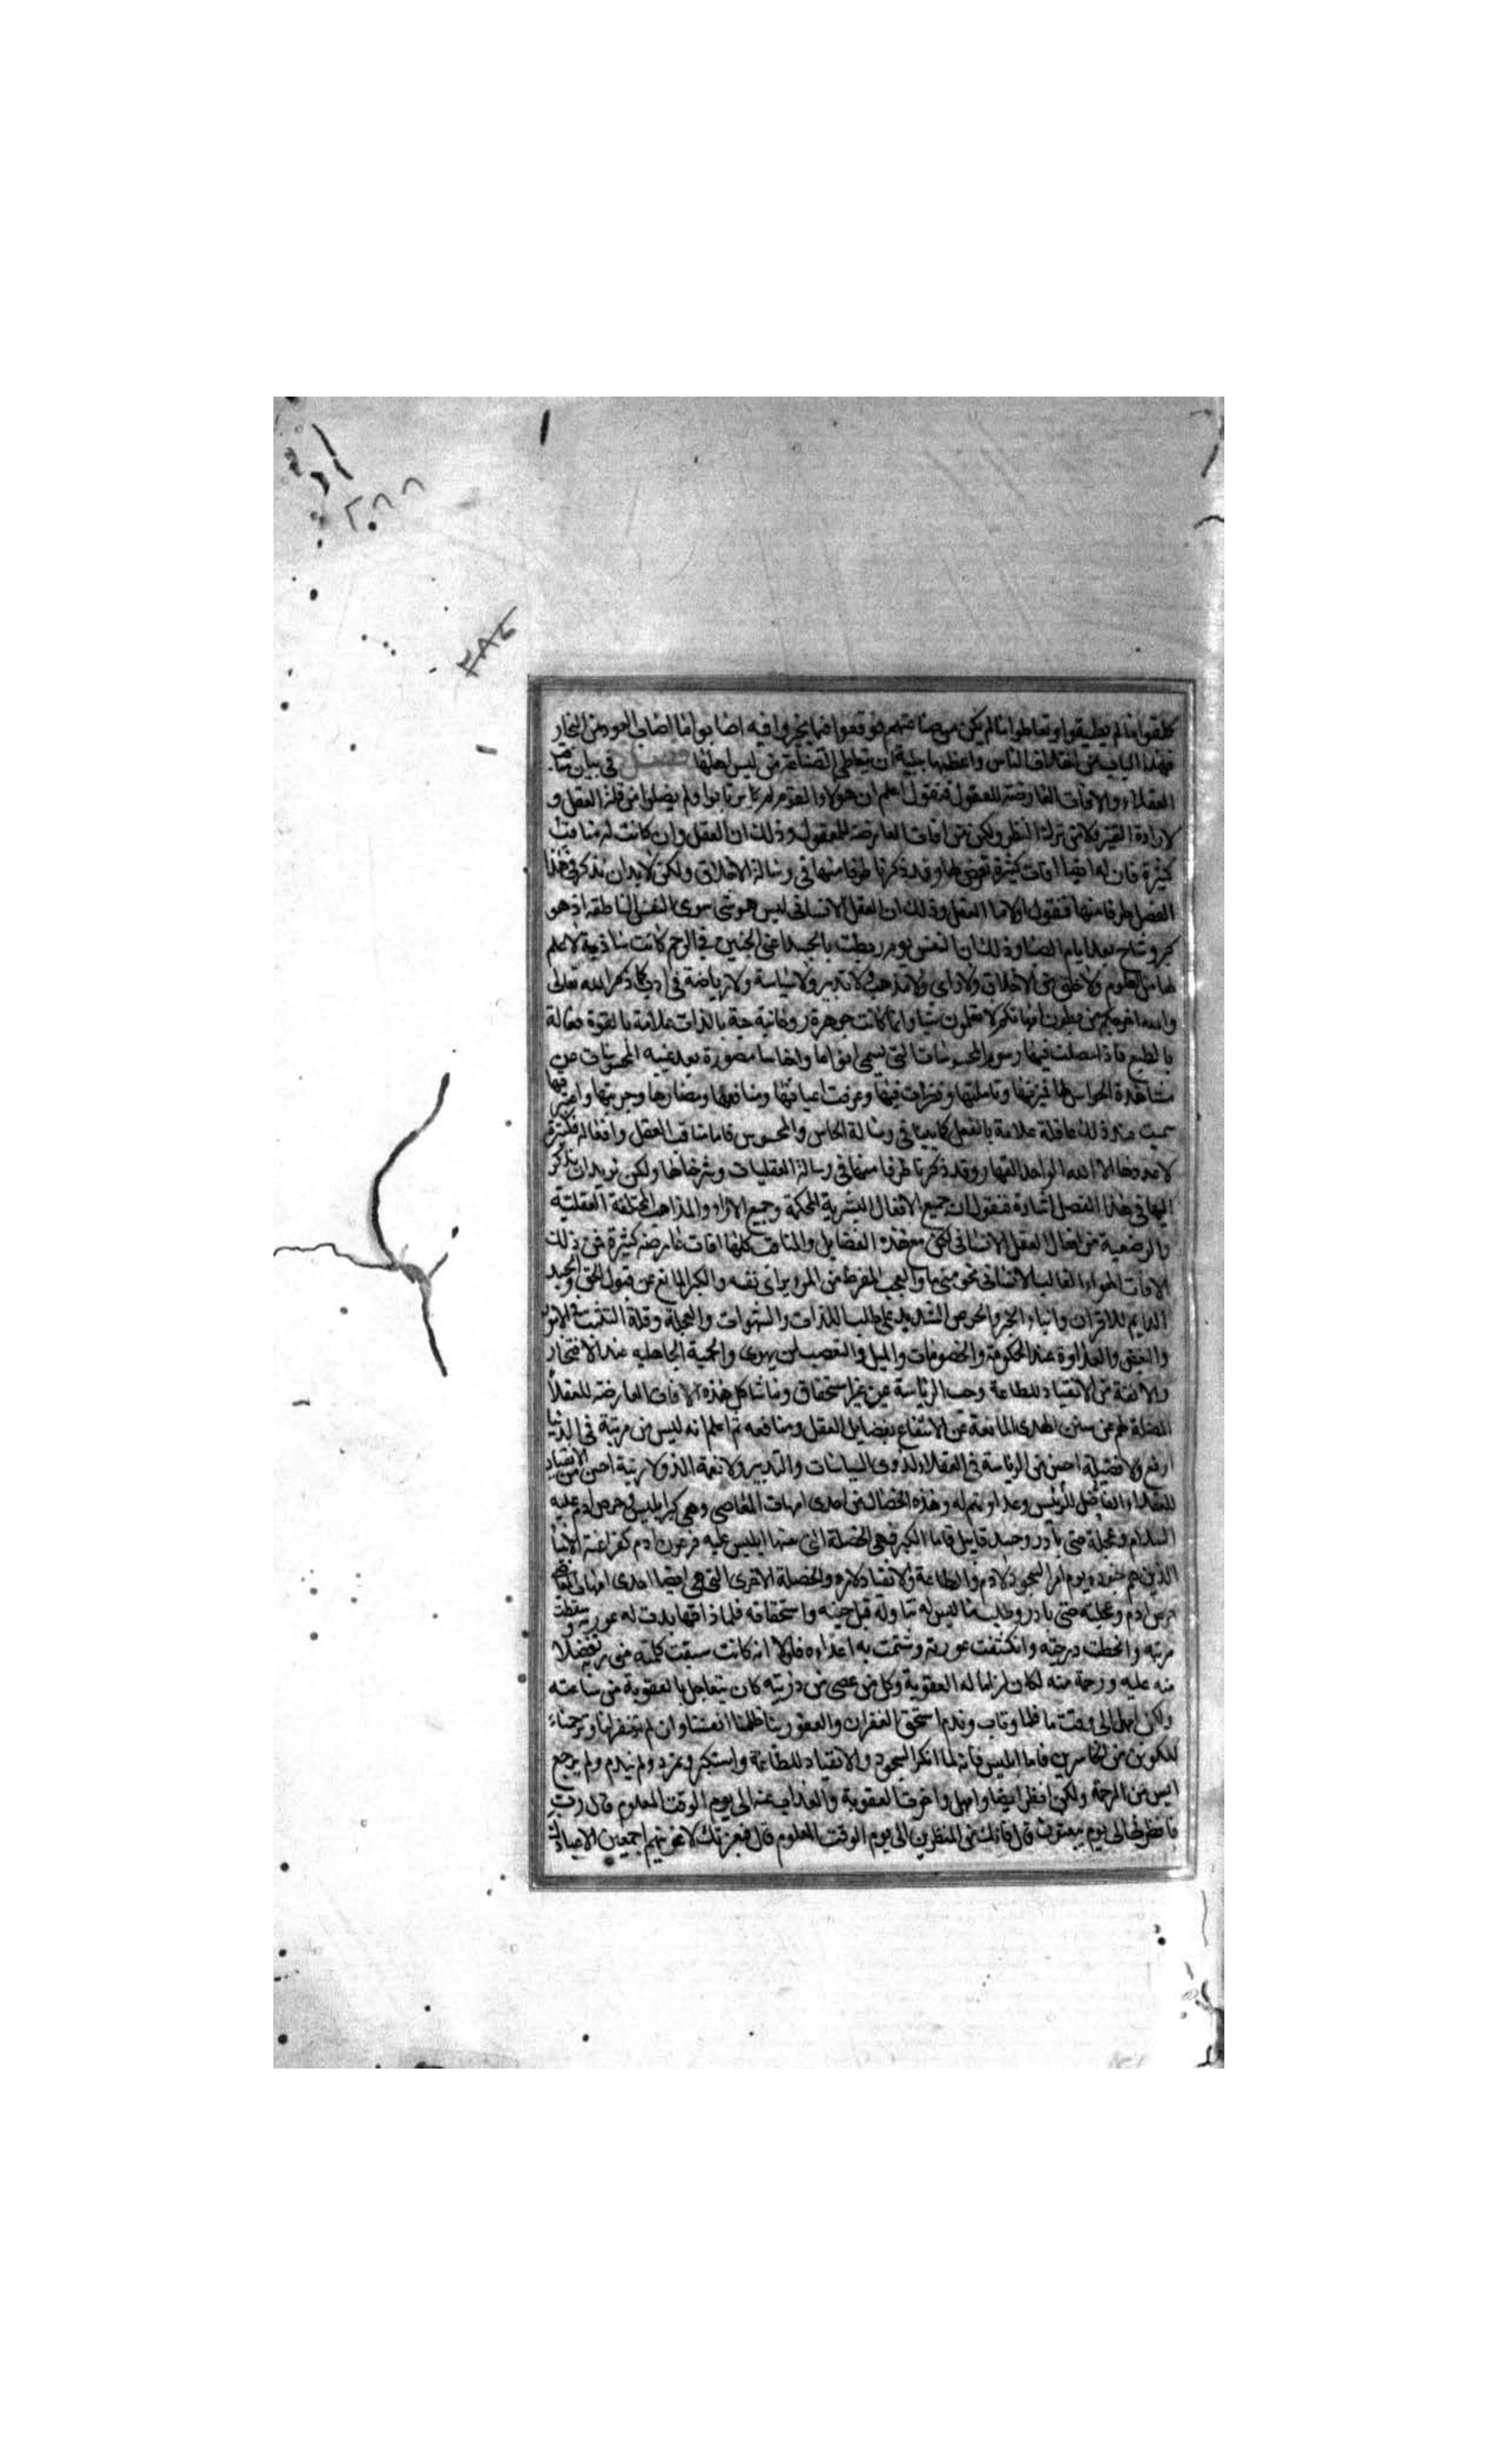 ٢٨٨
٢٨٤
كلفوا ما لم يطيقوا وتعاطوا ما لم يكن من صناعتهم فوقعوا فيما تحيروا فيه اصابوا ما اصاب العود من النجار
فهذا الباب من الناس واعظمها بلية ان يتعاطى الصناعة من ليس اهلها فصل في بيان مناقب
العقلاء والافات العارضة للعقول فنقول اعلم ان هولاء القوم لم يرتابوا ولم يضلوا من قلة العقل و
لا رداة التمييز ولا من ترك النظر ولكن من افات العارضة للعقول وذلك ان العقل وان كانت له مناقب
كثيرة فان له ايضا افات كثيرة تعرض لها وقد ذكرنا طرفا منها في رسالة الاخلاق ولكن لا بد ان نذكر في هذا
الفصل طرفا منها فنقول اولا ما العقل وذلك ان العقل الانساني ليس هو شى سوى النفس الناطقة اذ هو
كبر وشاخ بعد ايام الصبا وذلك ان النفس يوم ربطت بالجسد اعنى الجنين في الرحم كانت ساذجة لا علم
لها من العلوم ولا خلق من الاخلاق ولا راى ولا مذهب ولا تدبير ولا سياسة ولا رياضة في ادب كما ذكر الله تعالى
والله اخرجكم من بطون امهاتكم لا تعلمون شيا وانما كانت جوهرة روحانية حية بالذات علامة بالقوة فعالة
بالطبع فاذا حصلت فيها رسوم المحسوسات التى تسمى انواعا واجناسا مصورة بعد غيبة المحسوسات عن
مشاهدة الحواس لها فميزتها وتاملتها ونظرات فيها وعرفت اعيانها ومنافعها ومضارها وجربتها واعتبر فيها
سميت عند ذلك عاقلة علامة بالفعل كما بينا في رسالة الحاس والمحسوس فاما مناقب العقل وافعاله فكثيرة
لا يعددها الا الله الواحد القهار وقد ذكرنا طرفا منها في رسالة العقليات وشرحناها ولكن نريد ان نذكر
اليها في هذا الفصل اشارة فنقول ان جميع الافعال البشرية المحكمة وجميع الاراء والمذاهب المختلفة العقلية
والوضعية من افعال العقل الانسانى لكن مع هذه الفضايل والمناقب كلها افات عارضة كثيرة فمن ذلك
الافات الهواء الغالب للانسانى نحو شى ما والعجب المفرط من المرء براى نفسه والكبر المانع عن قبول الحق والحسد
الدايم للاقران وابناء الجنس والحرص الشديد على طلب اللذات والشهوات والعجلة وقلة التثبت في الامور
والبغض والعداوة عند الحكومة والخصومات والميل والتعصب لمن يهوى والحمية الجاهلية عند الافتخار
والانفة من الانقياد للطاعة وحب الرياسة من غير استحقاق وما شاكل هذه الافات العارضة للعقلاء
المضلة لهم عن سنن الهدى المانعة عن الانتفاع بفضايل العقل ومنافعه ثم اعلم انه ليس من مرتبة في الدنيا
ارفع ولا فضيلة احسن من الرياسة في العقلاء لذوى السياسات والتدبير ولا نعمة الذ ولا رتبة احسن من الانقياد
للعقلاء الفاضل للرئيس وعداوتهم له وهذه الخصال من احدى امهات المعاصى وهى كبر ابليس وحرص ادم عليه
السلام وعجلة حتى بادر وحسد قابيل فاما الكبر فهى الخصلة التى سنها ابليس عليه فرعون ادم كفراعنة الانبيا
الذين هم جنوده يوم امر السجود لادم والطاعة والانقياد لامره والخصلة الاخرى التى هى ايضا احدى امهات المعاصى
حرص ادم وعجلته حتى بادر وطلب ما ليس له تناوله قبل حينه واستحقاقه فلما ذاقها بدت له عورته وسقطت
مرتبته وانحطت درجته وانكشفت عورته وشمتت به اعداءه فلولا انه كانت سبقت كلمة من ربه تفضلا
منه عليه ورحمة منه لكان لزاما له العقوبة وكل من عصى من ذريته كان يتعاجل بالعقوبة من ساعته
ولكن امهل الى وقت ما فلما وتاب وندم استحق الغفران والعفو ربنا ظلمنا انفسنا وان لم تغفر لنا وترحمنا
لنكونن من الخاسرين فاما ابليس فانه لما انكر السجود والانقياد للطاعة واستكبر وتمرد ولم يندم ولم يرجع
ايس من الرحمة ولكن انظر ايضا وامهل واخرت العقوبة والعذاب عنه الى يوم الوقت المعلوم قال رب
فانظرنى الى يوم يبعثون قال فانك من المنظرين الى يوم الوقت المعلوم قال فبعزتك لاغوينهم اجمعين الا عبادك